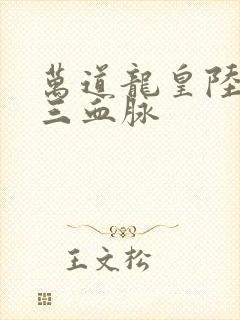 萬道龍皇陸
三血脉
王文松